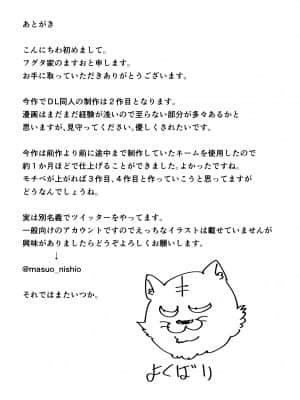 あとがき
こんにちわ初めまして。
フグタ家のますおと申します。
お手に取っていただきありがとうございます。
今作でDL同人の制作は2作目となります。
漫画はまだまだ経験が浅いので至らない部分が多々あるかと
思いますが、見守ってください、優しくされたいです。
今作は前作より前に途中まで制作していたネームを使用したので
約1か月ほどで仕上げることができました。よかったですね。
モチベが上がれば3作目、4作目と作っていこうと思ってますが
どうなんでしょうね。
実は別名義でツイッターをやってます。
一般向けのアカウントですのでえっちなイラストは載せていませんが
興味がありましたらどうぞよろしくお願いします。
↓
@masuo_nishio
それではまたいつか。
よくばり